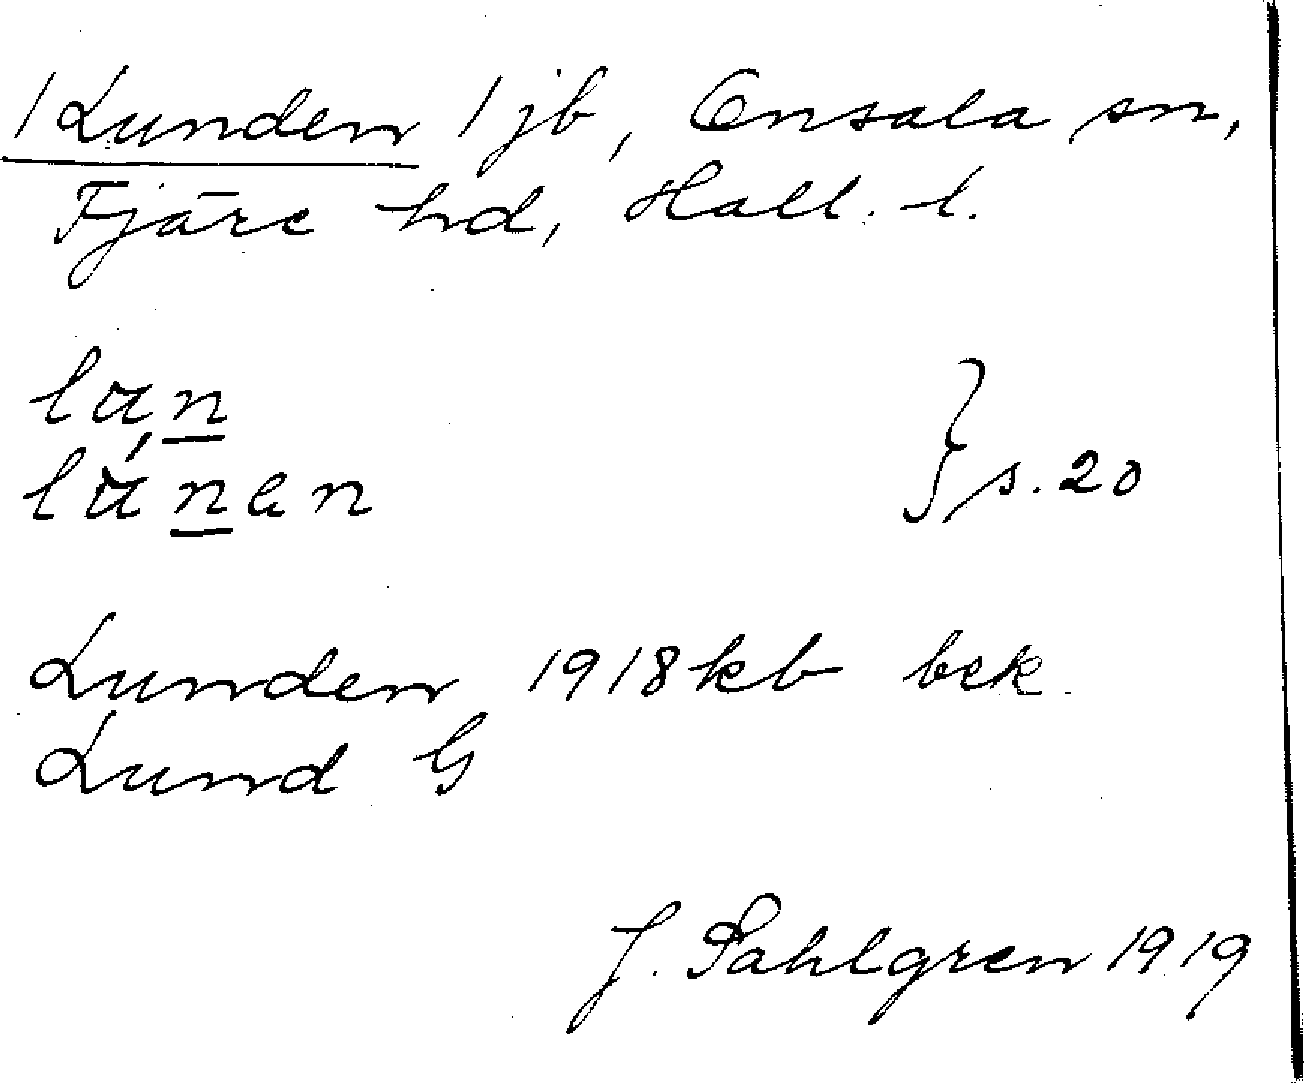 1 Lunden 1 jb, Onsala sn,
Fjäre hd, Hall. l.
lun
lúnen } s. 20
Lunden 1918 kb bek.
Lund G
J. Sahlgren 1919